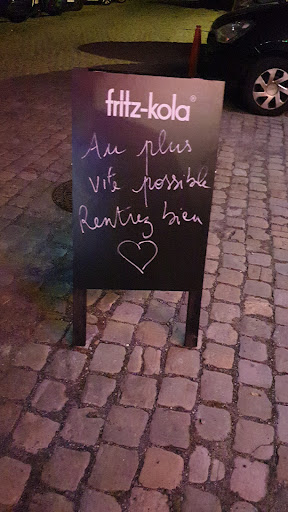 fritz-kola®
Au plus
vite possible
Rentrez bien